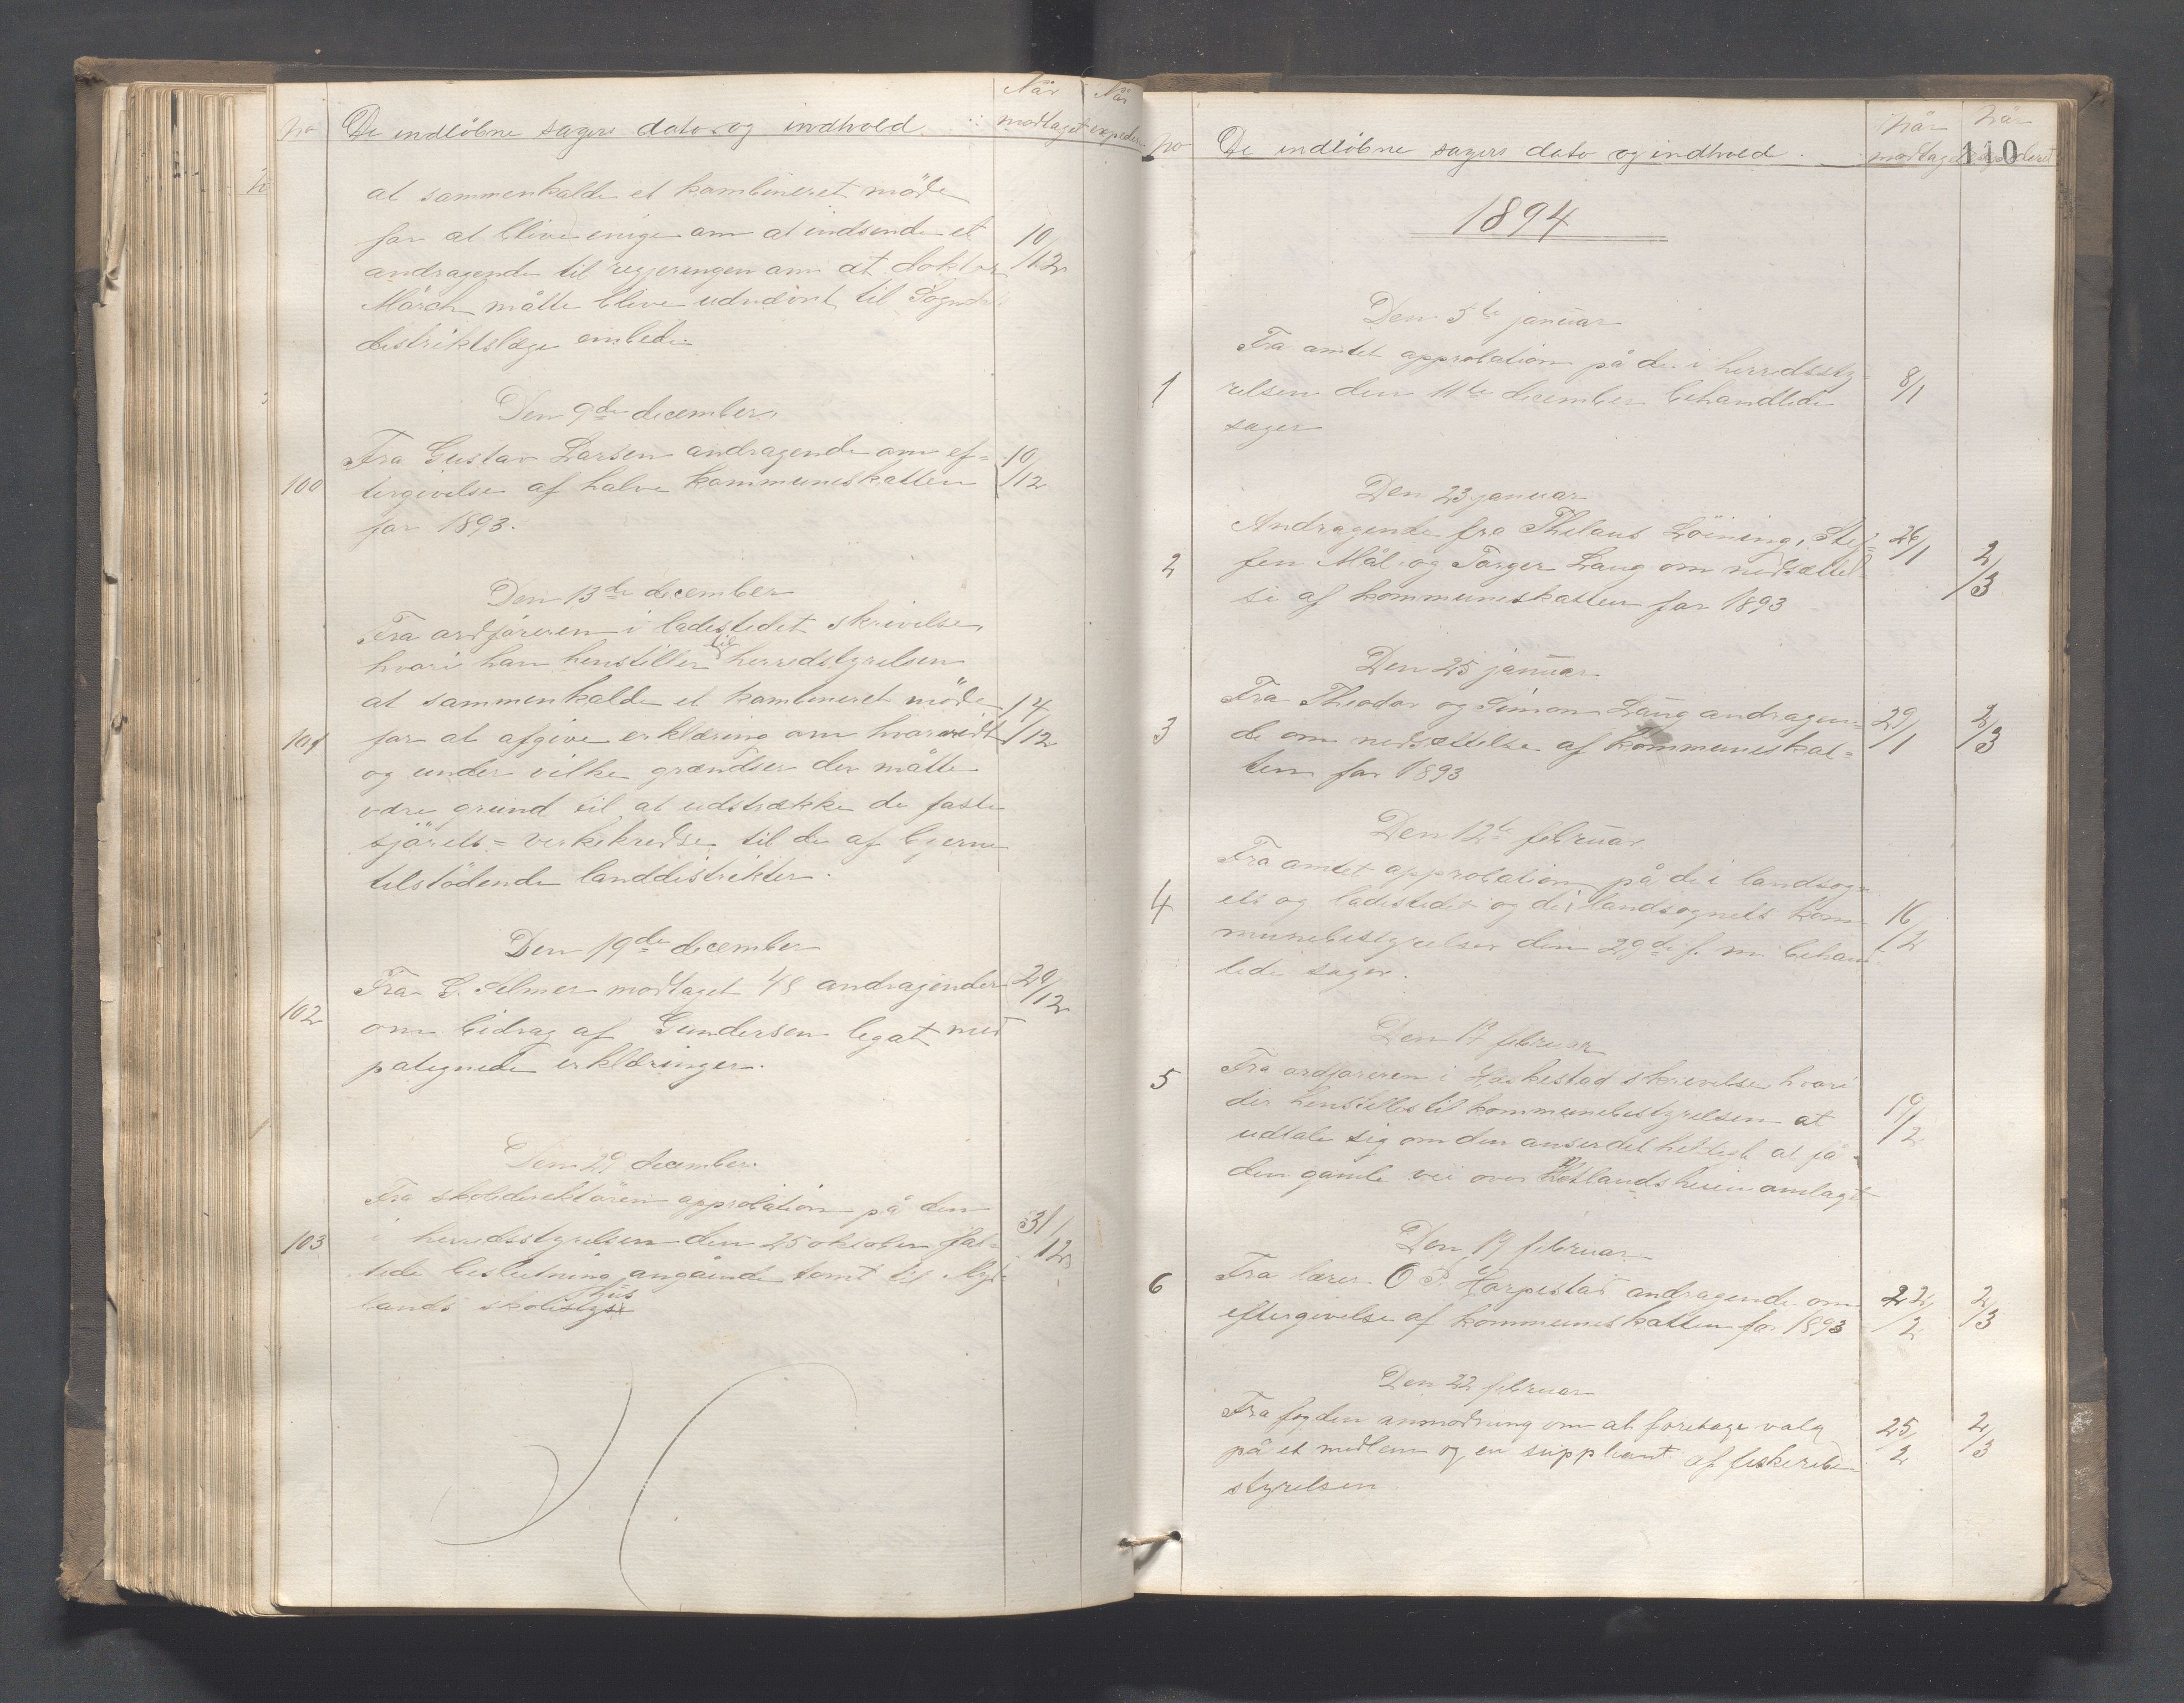 No De indløbne sagers dato og indhold. Når modtaget Når
at sammenkalde et kombineret møde
for at blive enige om at indsende et 10/12
andragende til regjeringen om at doktor
March måtte blive udnævnt til Sogndal
distriktslæge embede.
Den 9de december.
Fra Gustav Larsen andragende om ef= 10/12
100 tergivelse af halve kommuneskatten
for 1893.
Den 13de december
Fra ordføreren i ladestedet skrivelse,
hvori han henstiller til herredstyrelsen
at sammenkalde et kombineret møde 14/12
101 for at afgive erklæring om hvorvidt
og under vilke grændser der måtte
være grund til at udstrække de faste
tilstødende landdistrikter.
Den 19de december
Fra G. Selmer modtaget 48 andragender 20/12
102 om bidrag af Gundersen legat med
pategnede erklæringer.
Den 29 december.
Fra skoledirektøren approbation på den
103 i herredsstyrelsen den 25 oktober fat= 31/12
tede beslutning angående tomt til
lands skolehus
No De indløbne sagers dato og indhold. Når modtaget Når
110
1894
Den 5te januar
Fra amtet approbation på de i herredssty=
1 relsen den 11te december behandlede 8/1
sager
Den 23 januar
Andragende fra Thelaus Løining, Stef= 26/1
2 fen Mål og Torger Laug om nedsættel= 2/3
se af kommuneskatten for 1893
Den 25 januar
Fra Theodor og Simon Laug andragen= 29/1 2/3
3 de om nedsættelse af kommuneskat=
ten for 1893
Den 12te februar
Fra amtet approbation på de i landsogn
4 ets og ladestedet og de i landsognets kom= 16/2
munebestyrelser den 29de f. m. behand
lede sager.
Den 17 februar
5 Fra ordføreren i Heskestad skrivelse hvori
der henstilles til kommunebestyrelsen at 19/2
udtale sig om den anser det heldigt at få
den gamle vei over omlagt
Den 19 februar
6 Fra lærer O P. Harpestad andragende om 22/2 2/3
eftergivelse af kommuneskatten for 1893
Den 22 februar
Fra fogden anmodning om at foretage valg 25/2 2/3
på et medlem og en suppleant af fiskeribe
styrelsen